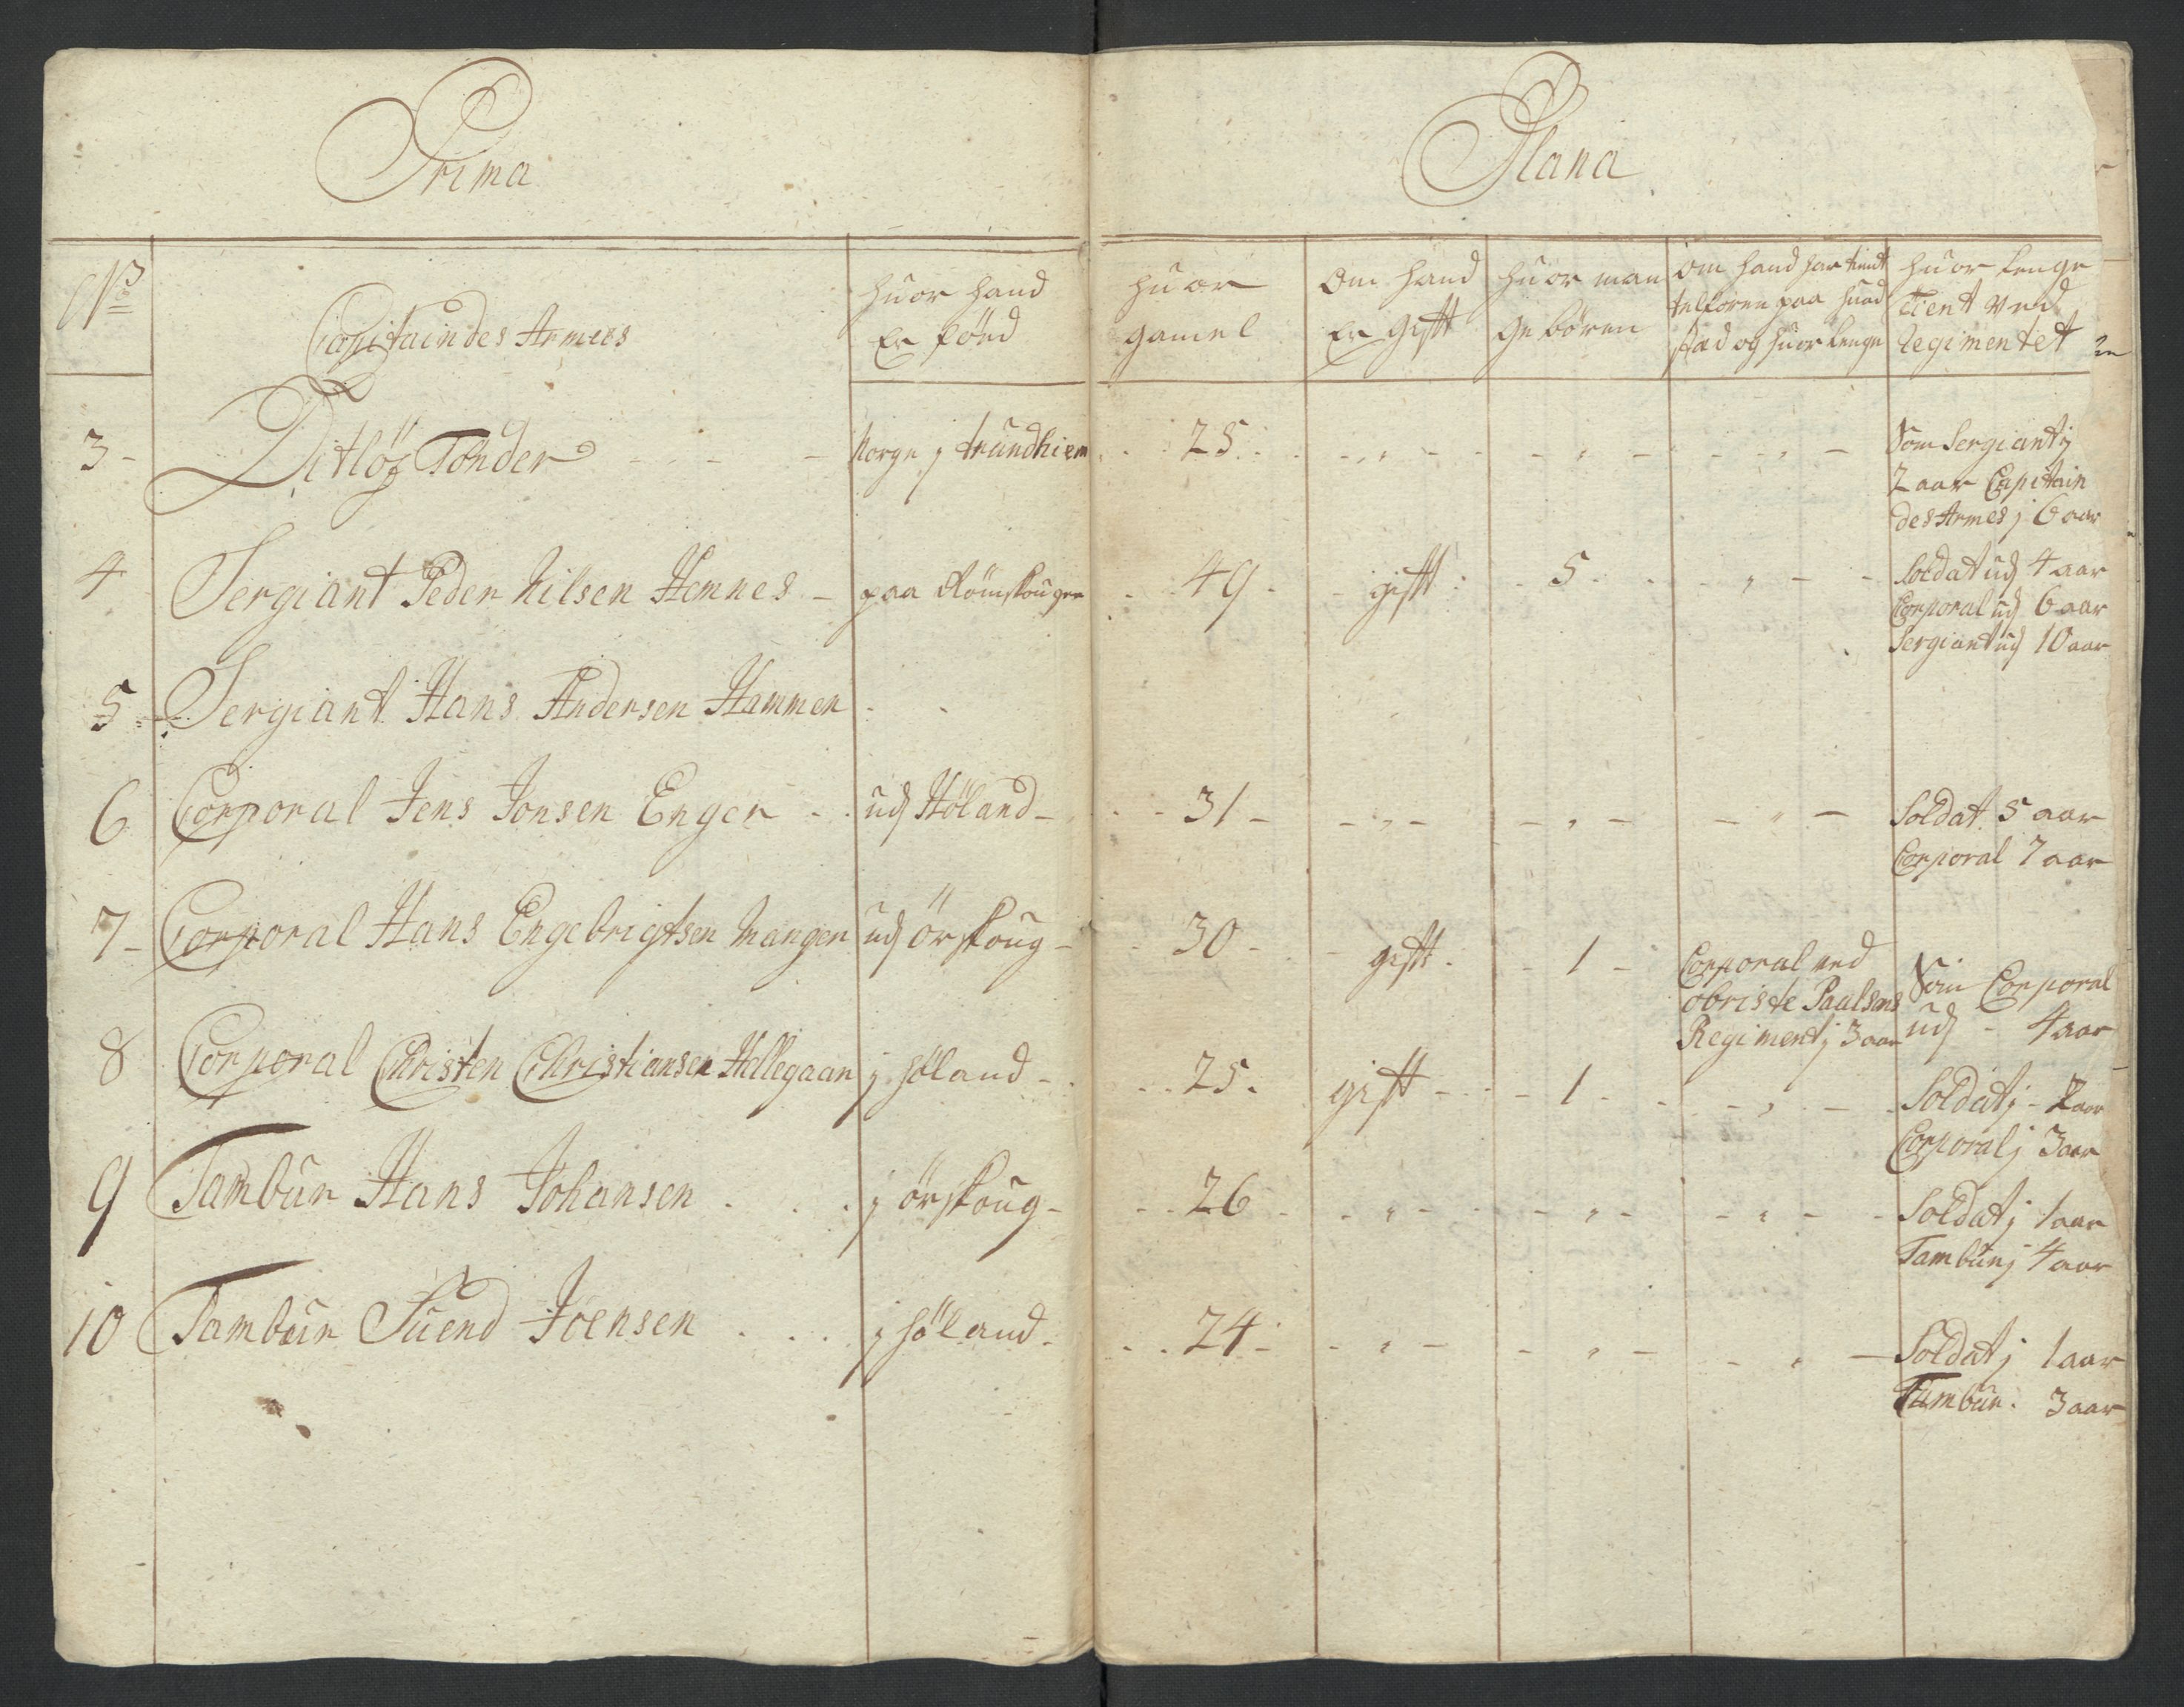 Prima Plana
No
Capitain des Armees
huor hand
Er född
huor
gamel
Om hand
Er gift
huor man
ge bören
Om hand har tient
tilforen paa huad
stæd og huor lenge
huor lenge
tient ved
Regimentet
3 - Ditlöf Tönder - - - Norge j trundhiem 25 - " - - " - - " - Som Sergiant j
2 aar Capitain
des Armes j 6 aar
4 Sergiant Peder Nilsen Hemnes - paa Römskougen 49 - gift 5 - " - Soldat udj 4 aar
Corporal udj 6 aar
Sergiant udj 10 aar
5 Sergiant Hans Andersen Hammer
6 Corporal Jens Jonsen Enger - udj Höland - 31 - - " - - " - - " - Soldat 5 aar
Corporal 7 aar
7 - Corporal Hans Engebrigtsen Mangen udj örskoug - 30 - gift - 1 - Corporal ved
obriste Paulsens
Regiment j 3 aar
Som Corporal
udj - 4 aar
8 Corporal Christen Christiansen Hellegaar j höland - 25 - gift - 1 - - " - Soldat j - 2 aar
Corporal j 3 aar
9 Tambur Hans Johansen j örskoug - 26 - " - - " - - " - Soldat j 1 aar
Tambur j 4 aar
10 Tambur Suend Joensen j höland - 24 - - " - - " - - " - Soldat j 1 aar
Tambur 3 aar